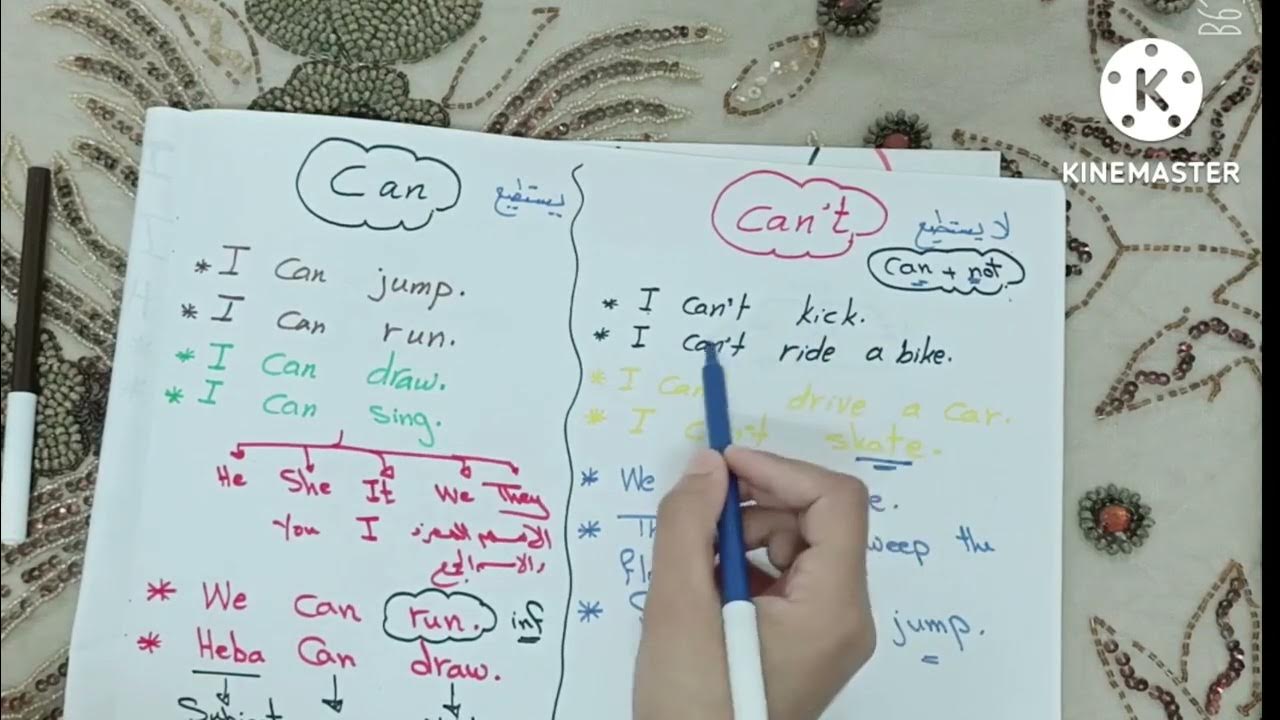 KINEMASTER
Can يستطيع
* I can jump.
* I can run.
* I can draw.
* I can sing.
He She It We They
You I الاسم المفرد
والاسم الجمع
* We can run. inf
* Heba Can draw.
Subject
can't لا يستطيع
can + not
* I can't kick.
* I can't ride a bike.
* I drive a car.
* I skate.
* We
* weep the
* jump.